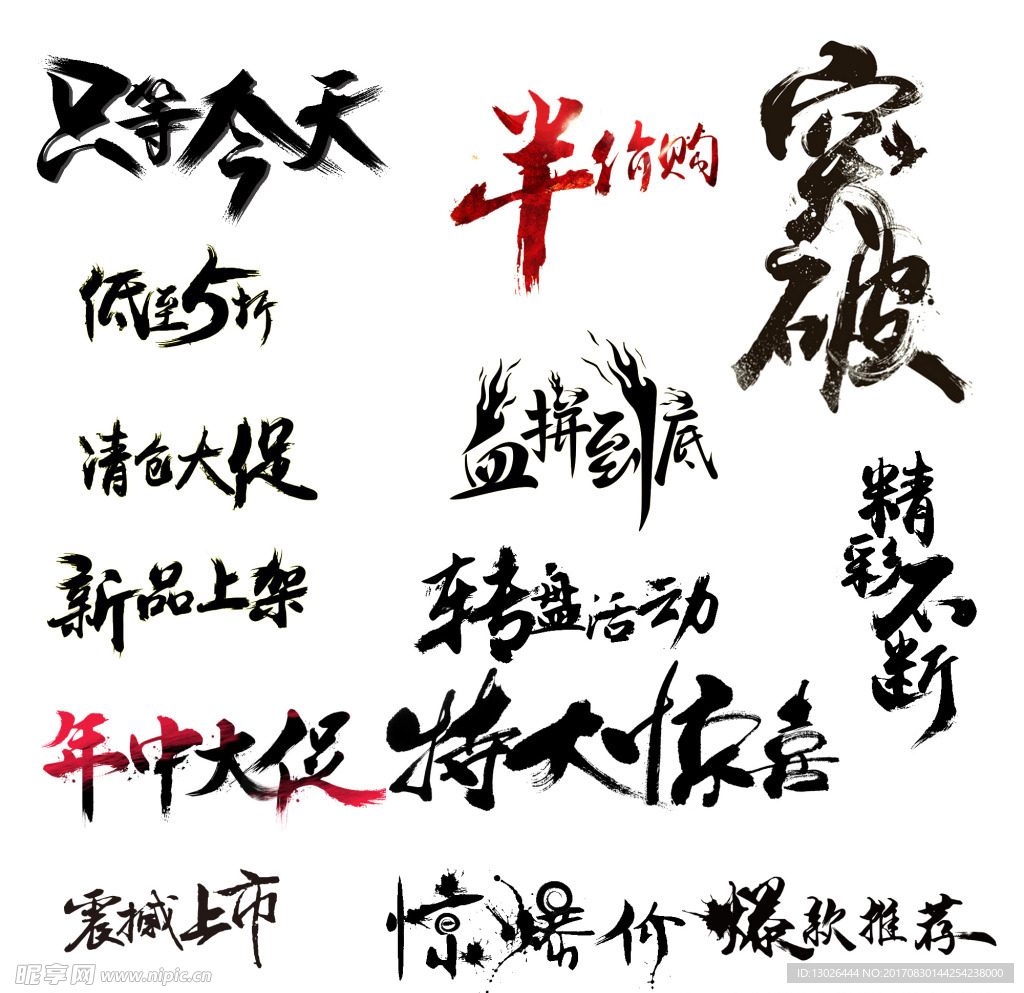 只等今天
半价购
突破
低至5折
血拼到底
清仓大促
精彩不断
新品上架
转盘活动
年中大促
特大惊喜
震撼上市
惊爆价
爆款推荐
昵享网 www.nipic.cn
ID:13026444 NO:20170830144254238000